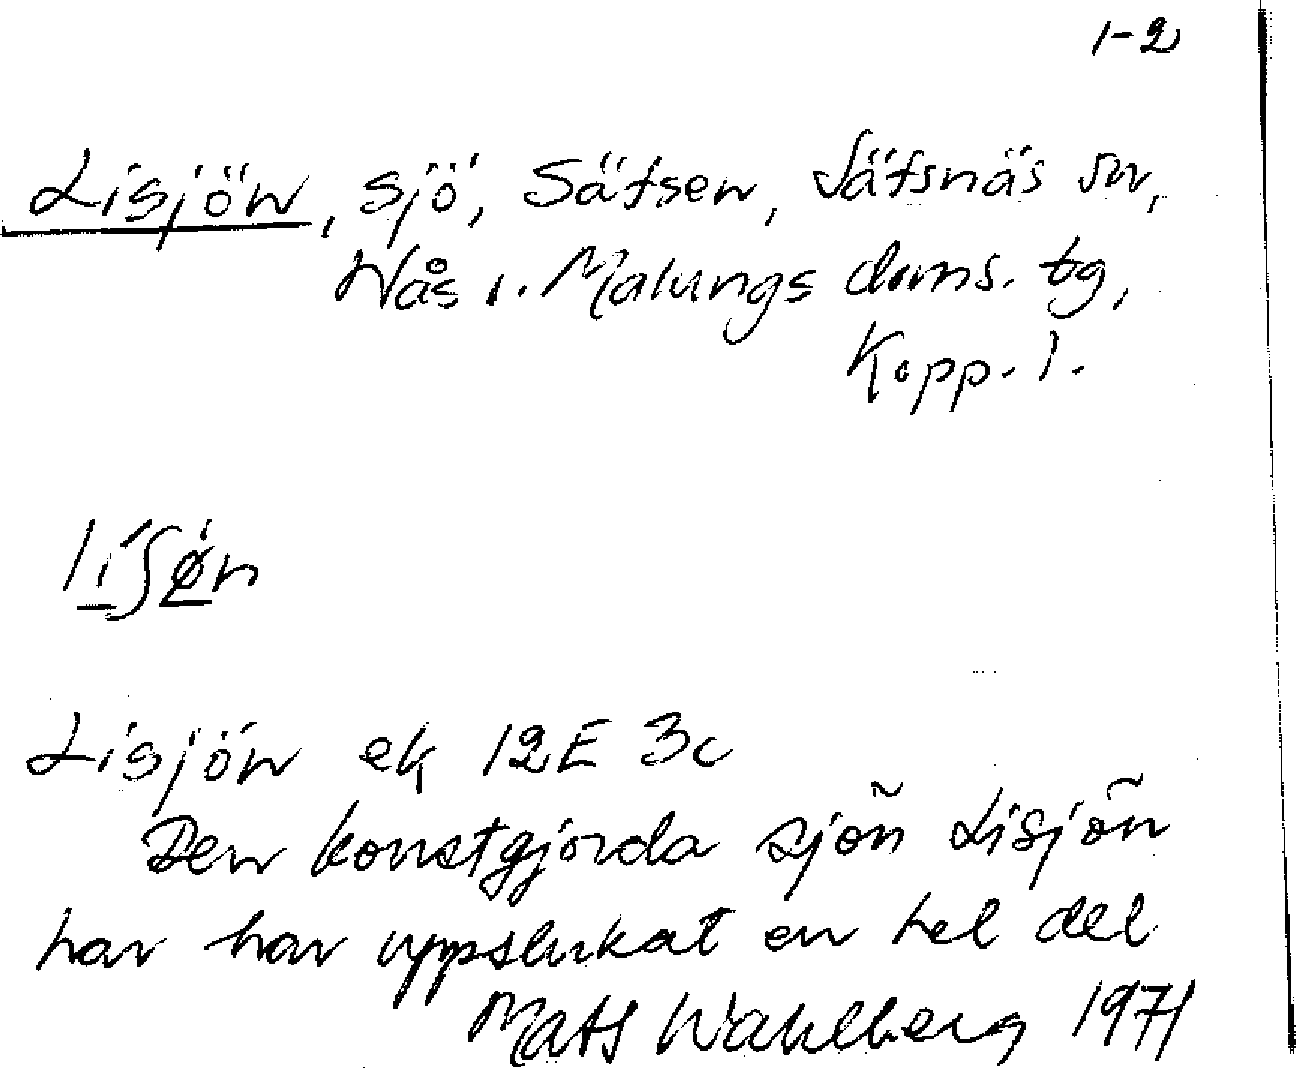 1-2
Lisjön, sjö, Sätsen, Sätsnäs sn,
Nås o. Malungs doms. tg,
Kopp. l.
Lisjön ek 12E 3c
Den konstgjorda sjön Lisjön
har har uppslukat en hel del
Mats Wahlberg 1971